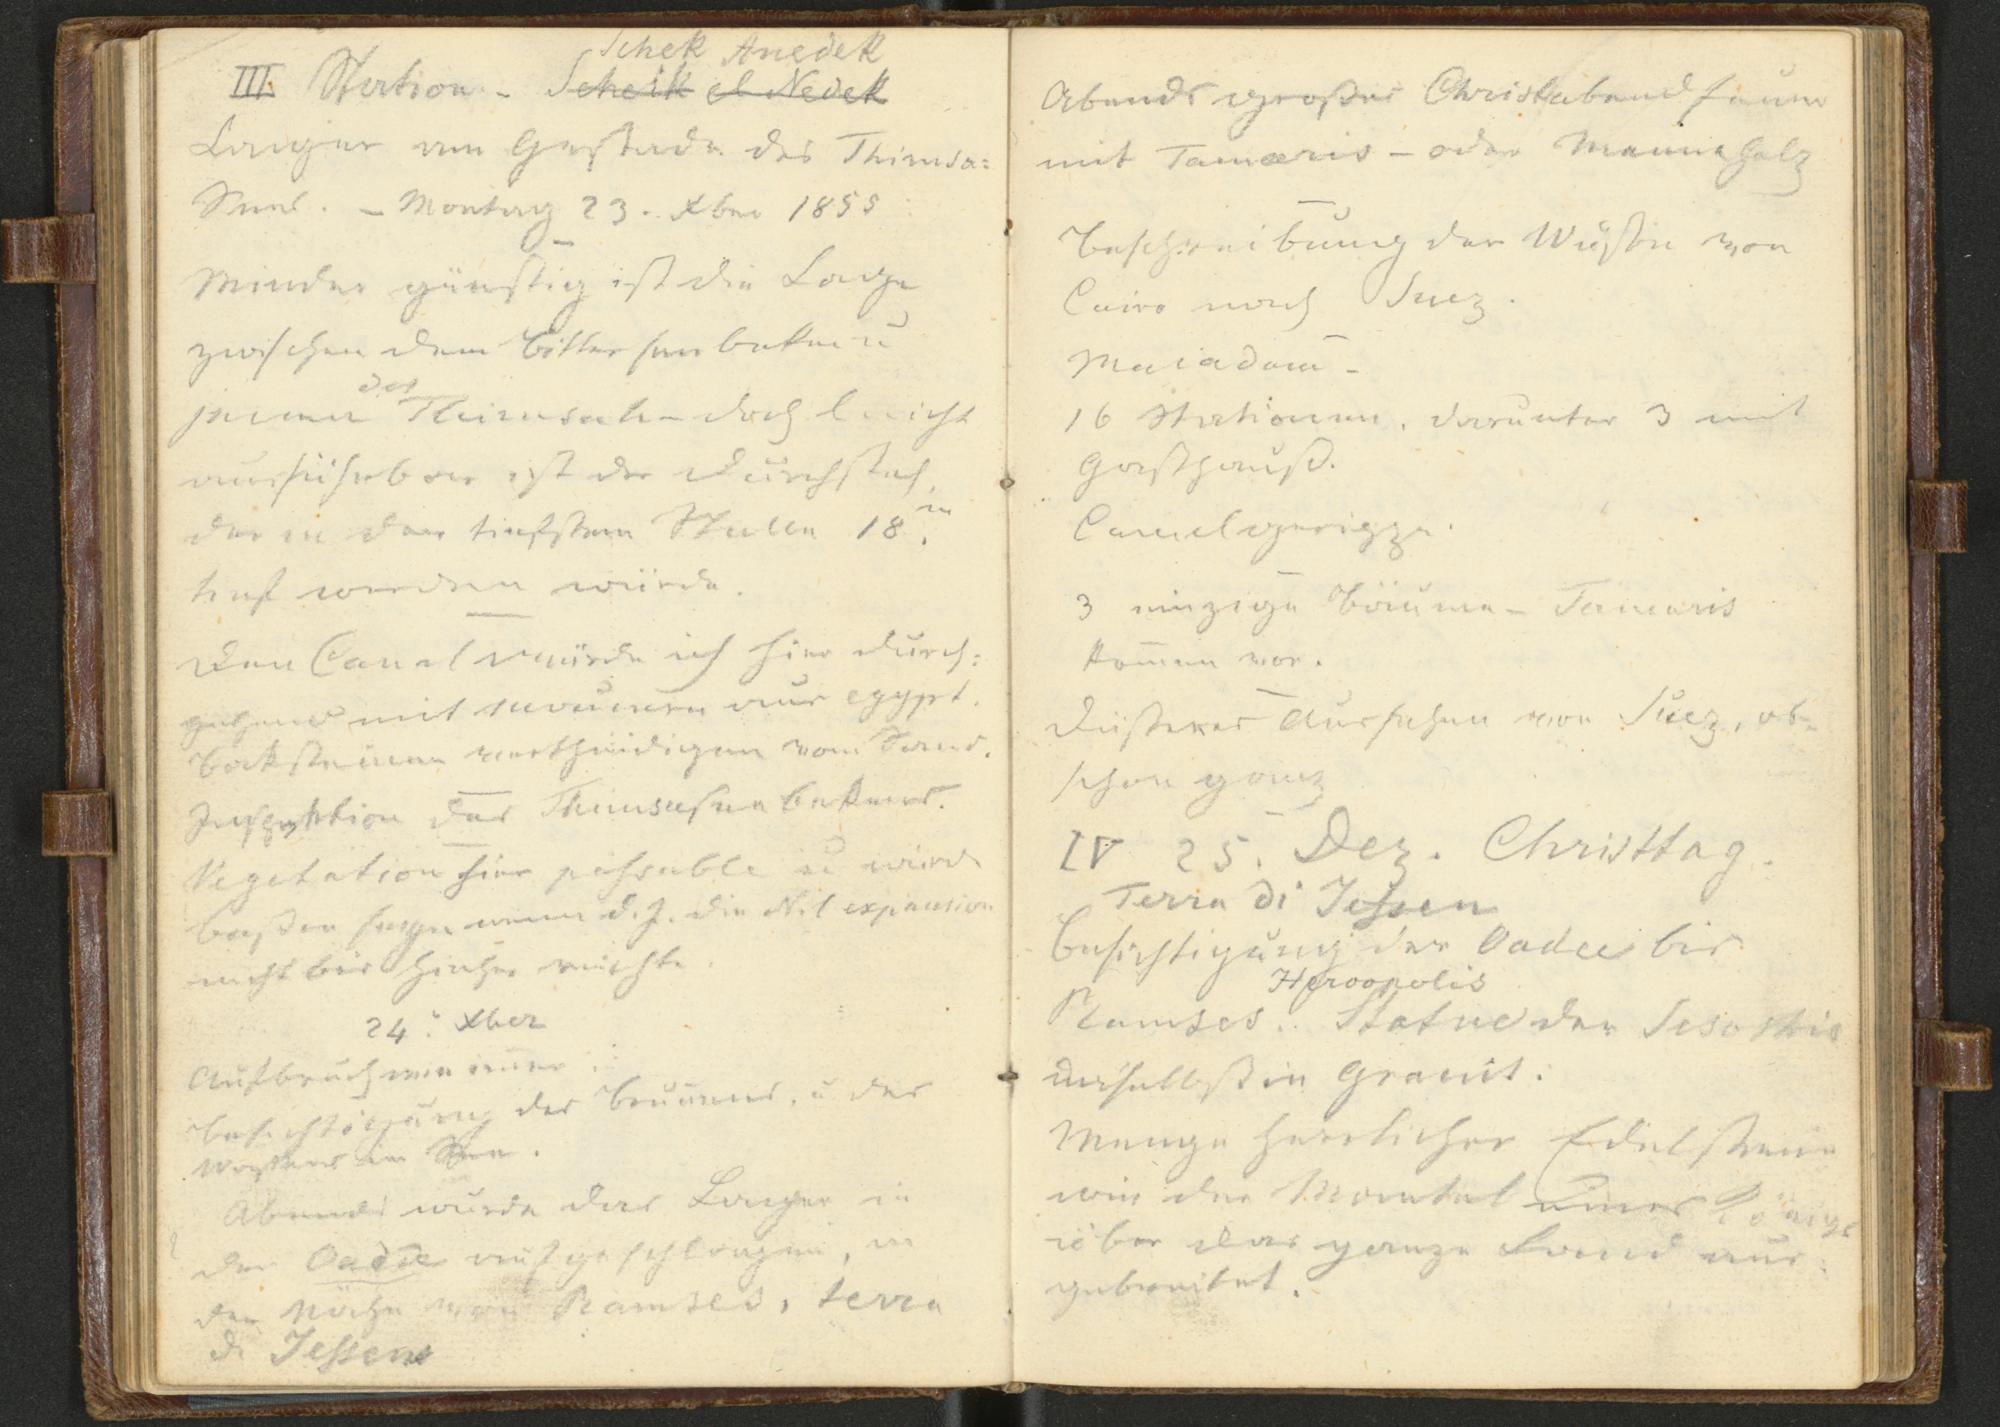 Schek Anedek
III. Station - Scheik el Nedek
Lager am Gestade des Thimsa=
Sees. - Montag 23. Xber 1855
Minder günstig ist die Lage
zwischen dem Bitterseebeken u
jenem des Thimsah - doch leicht
ausführbar ist der Durchstich,
der in den tiefsten Stellen 18 m.
tief werden würde.
Den Canal würde ich hier durch=
gehend mit Mauern aus egypt.
Baksteinen vertheidigen vom Sand.
Inspektion des Thimsaseebekens.
Vegetation hier passable u würde
besser seyn wenn d. J. die Nil expansion
nicht bis hieher reichte.
24. Xber
Aufbruch
Besichtigung des Brunnens, u des
Wassers im See.
Abends wurde das Lager in
der Oadée aufgeschlagen, in
der Nähe von Ramses, terra
di Jessen
Abends großes Christabendfeuer
mit Tamaris - oder Mannaholz
Beschreibung der Wüste von
Cairo nach Suez.
16 Stationen, darunter 3 mit
Gasthauß.
Camelgerippe.
3 einzige Bäume - Tamaris
kommen vor.
Düsteres Aussehen von Suez, ob-
schon ganz
IV 25. Dez. Christtag.
Terra di Jessen
Besichtigung der Oadee bis
Heroopolis
Ramses. Statue des Sesostris
daselbst in Granit.
Menge herrlicher Edelsteine
wie der Mantel eines Königs
über das ganze Land aus=
gebreitet.